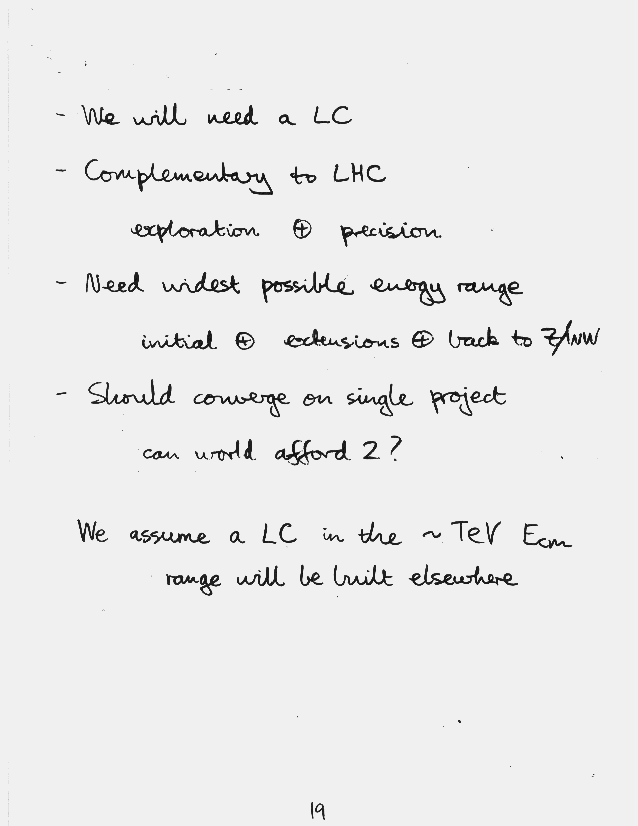 - We will need a LC
- Complementary to LHC
exploration ⊕ precision
- Need widest possible energy range
initial ⊕ extensions ⊕ back to Z/WW
- Should converge on single project
can world afford 2?
We assume a LC in the ~ TeV Ecm
range will be built elsewhere
19